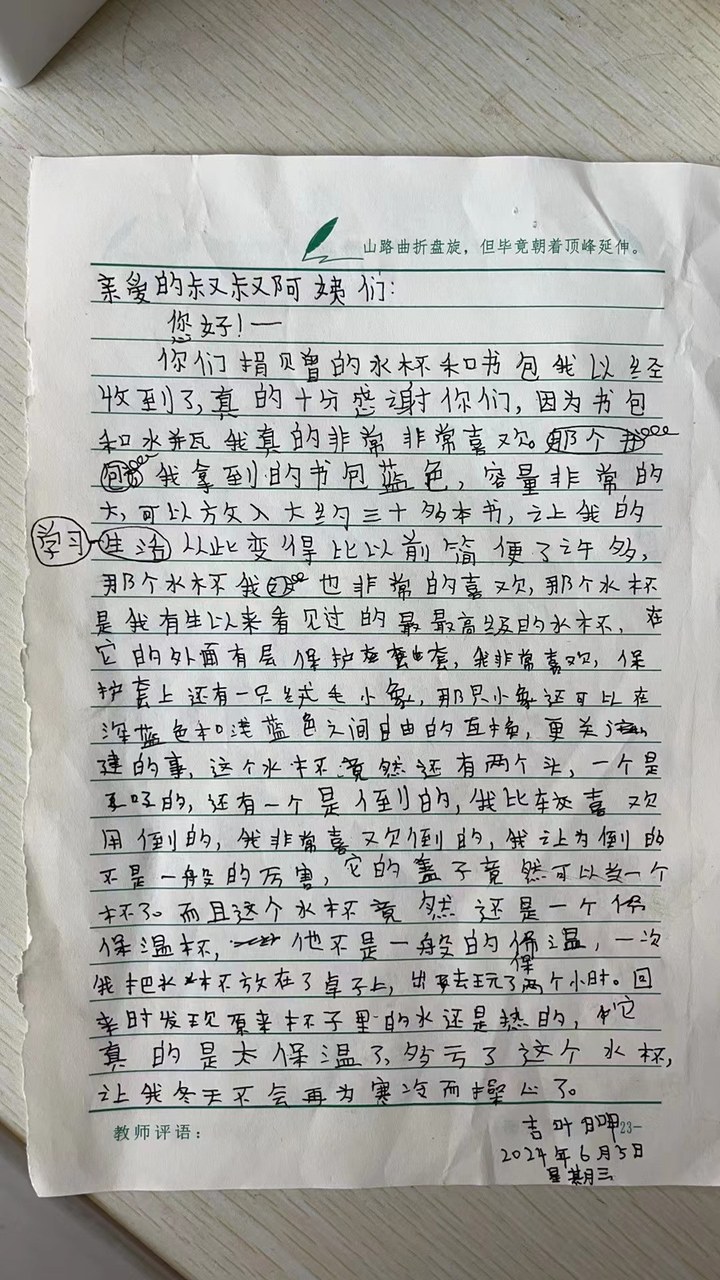 山路曲折盘旋，但毕竟朝着顶峰延伸。
亲爱的叔叔阿姨们：
您好！一
你们捐赠的水杯和书包我以经
收到了，真的十分感谢你们，因为书包
和水瓶我真的非常非常喜欢。那个书
包 我拿到的书包蓝色，容量非常的
大，可以放入大约三十多本书，让我的
学习生活从此变得比以前简便了许多，
那个水杯我 也非常的喜欢，那个水杯
是我有生以来看见过的最最高级的水杯，在
它的外面有层保护套，我非常喜欢，保
护套上还有一只绒毛小象，那只小象还可以在
深蓝色和浅蓝色之间自由的互换，更关
建的事，这个水杯竟然还有两个头，一个是
的，还有一个是倒的，我比较喜欢
用倒的，我非常喜欢倒的，我认为倒的
不是一般的厉害，它的盖子竟然可以当一个
杯了。而且这个水杯竟然还是一个
保温杯，他不是一般的保温，一次
我把水杯放在了桌子上，出去玩了两个小时。回
来时发现原来杯子里的水还是热的，它
真的是太保温了，多亏了这个水杯，
让我冬天不会再为寒冷而操心了。
教师评语：
吉叶日呷
23-
2024年6月5日
星期三